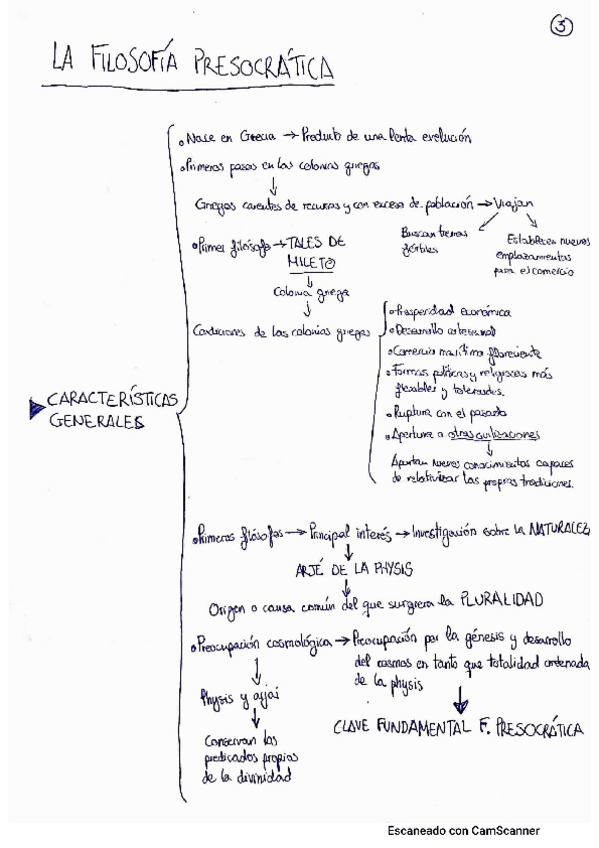 3
LA FILOSOFÍA PRESOCRÁTICA
• Nace en Grecia → Producto de una lenta evolución
• Primeros pasos en las colonias griegas
↓
Griegos carentes de recursos y con exceso de población → Viajan
Buscan tierras
fértiles
Establecen nuevos
emplazamientos
para el comercio
• Primer filósofo → TALES DE
MILETO
↓
Colonia griega
↓
Condiciones de las colonias griegas
• Prosperidad económica
• Desarrollo artesanal
• Comercio marítimo floreciente
• Formas políticas y religiosas más
flexibles y tolerantes.
• Ruptura con el pasado
• Apertura a otras civilizaciones
↓
Aportan nuevos conocimientos capaces
de relativizar las propias tradiciones.
CARACTERÍSTICAS
GENERALES
• Primeros filósofos → Principal interés → Investigación sobre la NATURALEZ
↓
ARJÉ DE LA PHYSIS
↓
Origen o causa común del que surgiera la PLURALIDAD
• Preocupación cosmológica → Preocupación por la génesis y desarrollo
del cosmos en tanto que totalidad ordenada
de la physis
↓
CLAVE FUNDAMENTAL F. PRESOCRÁTICA
↓
Physis y
↓
Conservan los
predicados propios
de la divinidad
Escaneado con CamScanner